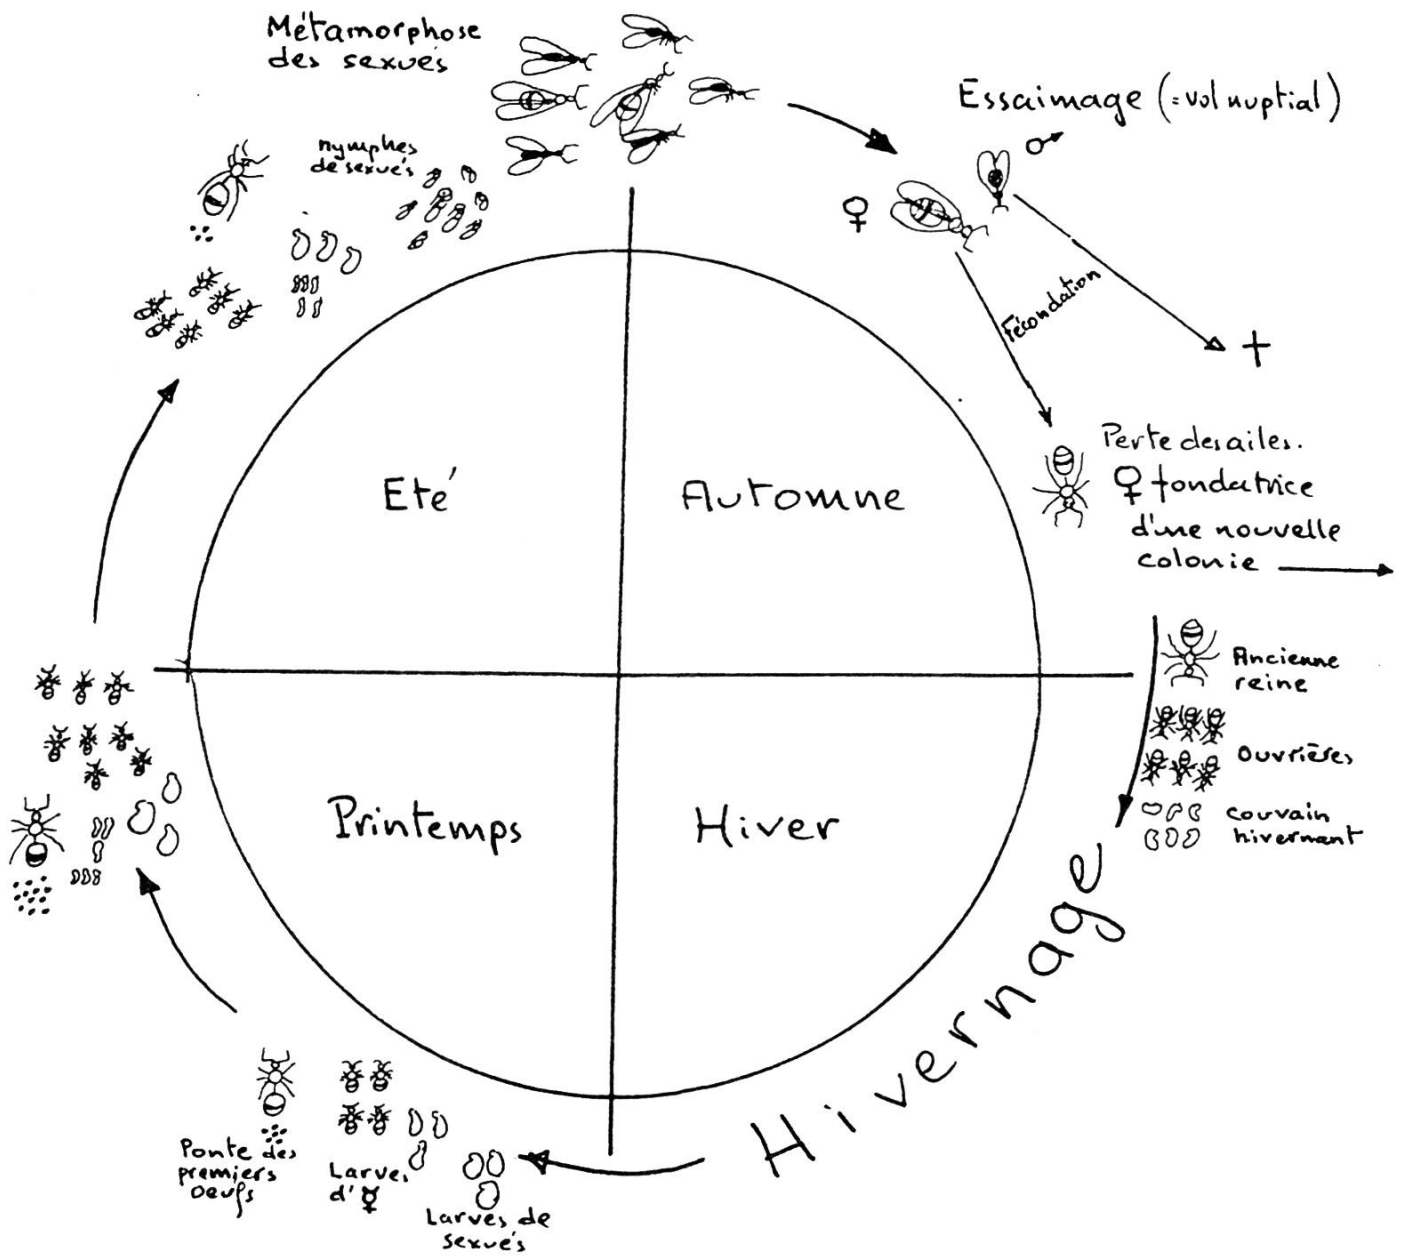 Métamorphose
des sexués
nymphes
de sexués
Essaimage (=vol nuptial)
♂
♀
Fécondation
+
Perte des ailes.
♀ fondatrice
d'une nouvelle
colonie
Eté
Automne
Ancienne
reine
Ouvrières
couvain
hivernant
Printemps
Hiver
Hivernage
Ponte des
premiers
oeufs
Larves
d'☿
Larves de
sexués